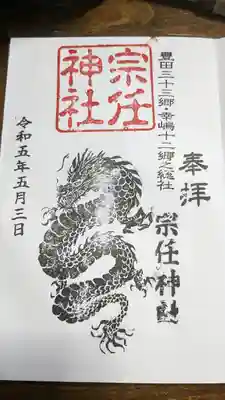 奉拝
豊田三十三郷・幸嶋十二郷之総社
宗任神社
宗任
神社
令和五年五月三日